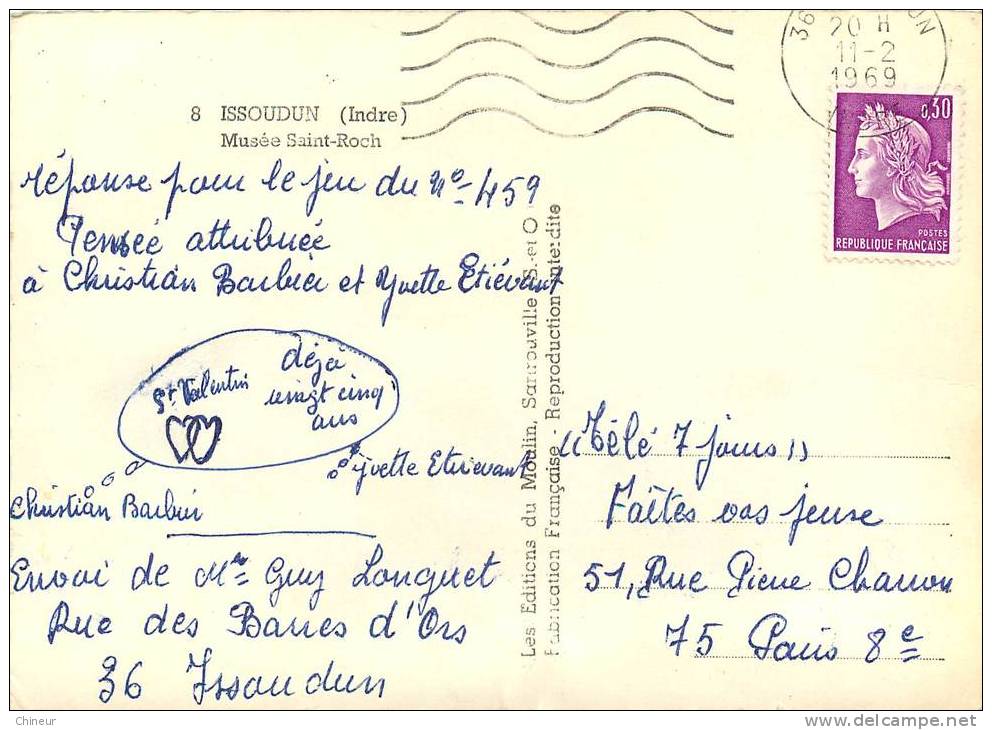 8 ISSOUDUN (Indre)
Musée Saint-Roch
réponse pour le jeu du No 459
Pensée attribuée
à Christian Barbier et Yvette Etiévant
St Valentin
déjà
vingt cinq
ans
Yvette Etievant
Christian Barbier
Envoi de Mr Guy Longuet
Rue des Barres d'Ors
36 Issoudun
Les Éditions du Moulin, Sartrouville S.-et-O
Fabrication Française - Reproduction interdite
36 DUN
20 H
11-2
1969
0,30
POSTES
REPUBLIQUE FRANÇAISE
"Télé 7 jours"
Faîtes vos jeux
51, Rue Pierre Charron
75 Paris 8e
Chineur
http://www.delcampe.net